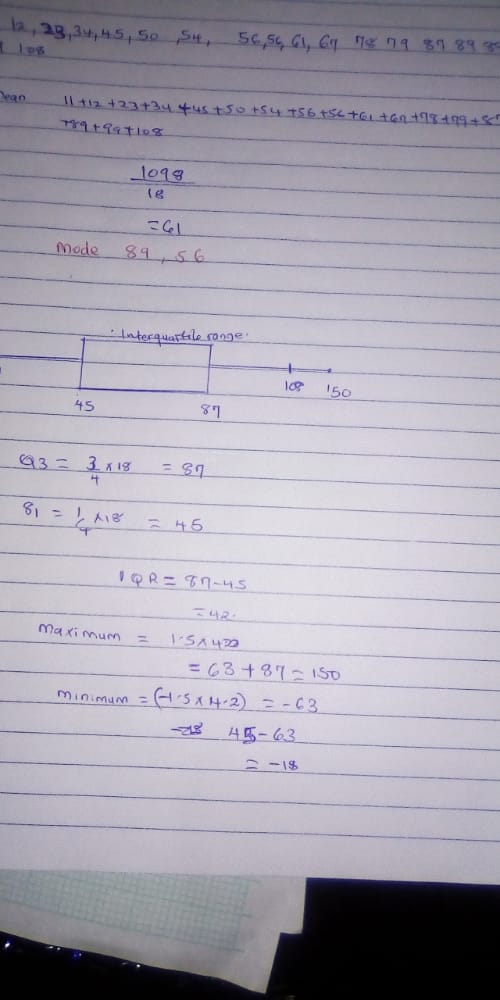 12, 23, 34, 45, 50 , 54, 56, 56, 61, 67 78 79 87 89 89
108
ean 11+12+23+34+45+50+54+56+56+61+67+78+79+87
+89+99+108
1098
18
=61
Mode 89, 56
Interquartile range.
108 150
45 87
Q3 = 3/4 x 18 = 87
81 = 1/4 x 18 = 45
IQR = 87-45
=42.
Maximum = 1.5 x
= 63 + 87 = 150
Minimum = (-1.5 x 4.2) = -63
45-63
= -18